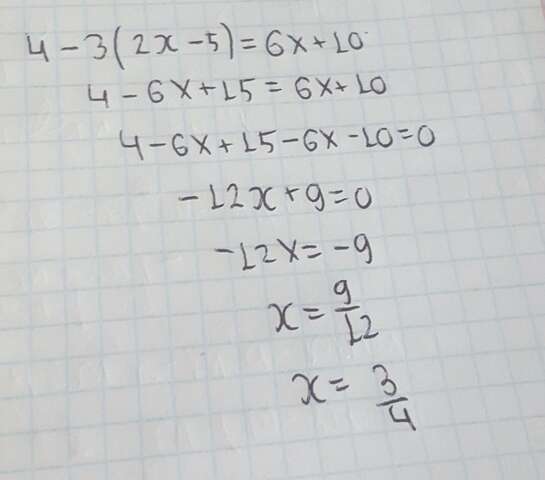 4 - 3(2x - 5) = 6x + 10
4 - 6x + 15 = 6x + 10
4 - 6x + 15 - 6x - 10 = 0
-12x + 9 = 0
-12x = -9
x = 9/12
x = 3/4